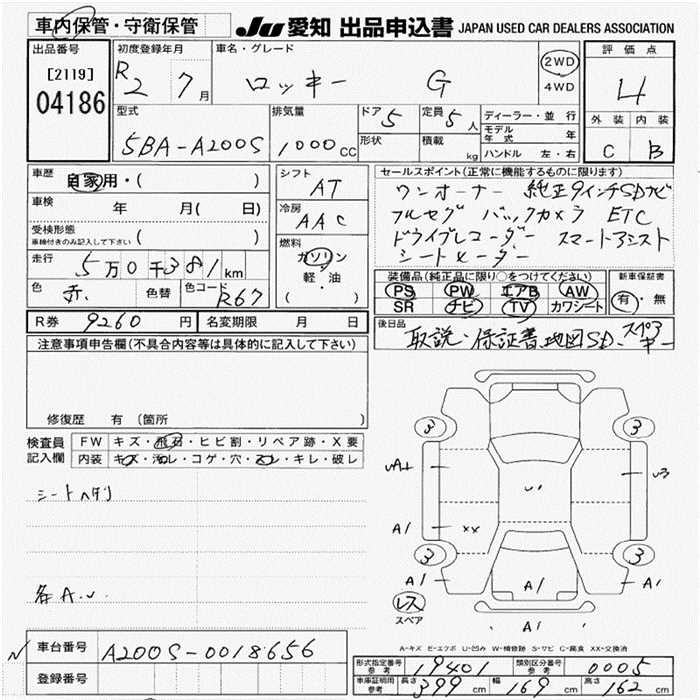 車内保管・守衛保管 JU 愛知 出品申込書 JAPAN USED CAR DEALERS ASSOCIATION
出品番号 初度登録年月 車名・グレード 2WD 評価点
[2119] R2 7月 ロッキー G 4WD 4
04186
型式 排気量 ドア 5 定員 5人 ディーラー・並行 外装 内装
5BA-A200S 1000CC 形状 積載 kg モデル年式 年 C B
ハンドル 左・右
車歴 自家用・( ) シフト AT セールスポイント(正常に機能するものに限ります)
車検 年 月( 日) 冷房 AAC ワンオーナー 純正9インチSDナビ
受検形態 車検付きのみ記入して下さい ( ) フルセグ バックカメラ ETC
走行 5万0千381km 燃料 ガソリン 軽・油 ( ) ドライブレコーダー スマートアシスト
シートヒーター
色 赤 色替 色コード R67 装備品(純正品に限り○をつけてください) 新車保証書
PS PW エアB AW 有・無
SR ナビ TV カワシート
R券 9260円 名変期限 月 日 後日品
取説・保証書 地図SD スペアキー
注意事項申告欄(不具合内容等は具体的に記入して下さい)
修復歴 有 (箇所 )
検査員記入欄 FW キズ・飛石・ヒビ割・リペア跡・X要
内装 キズ・汚レ・コゲ・穴・スレ・キレ・破レ
3 3
UA1 U3
シートヘタリ U1
A1 XX
3 3
A1 A1 A1
各A.U レス
スペア A1
A-キズ E-エクボ U-凹み W-補修跡 S-サビ C-腐食 XX-交換済
車台番号 A200S-0018656
登録番号
形式指定番号 参考 19401 類別区分番号 参考 0005
車庫証明用 参考 長さ 399cm 幅 169cm 高さ 162cm